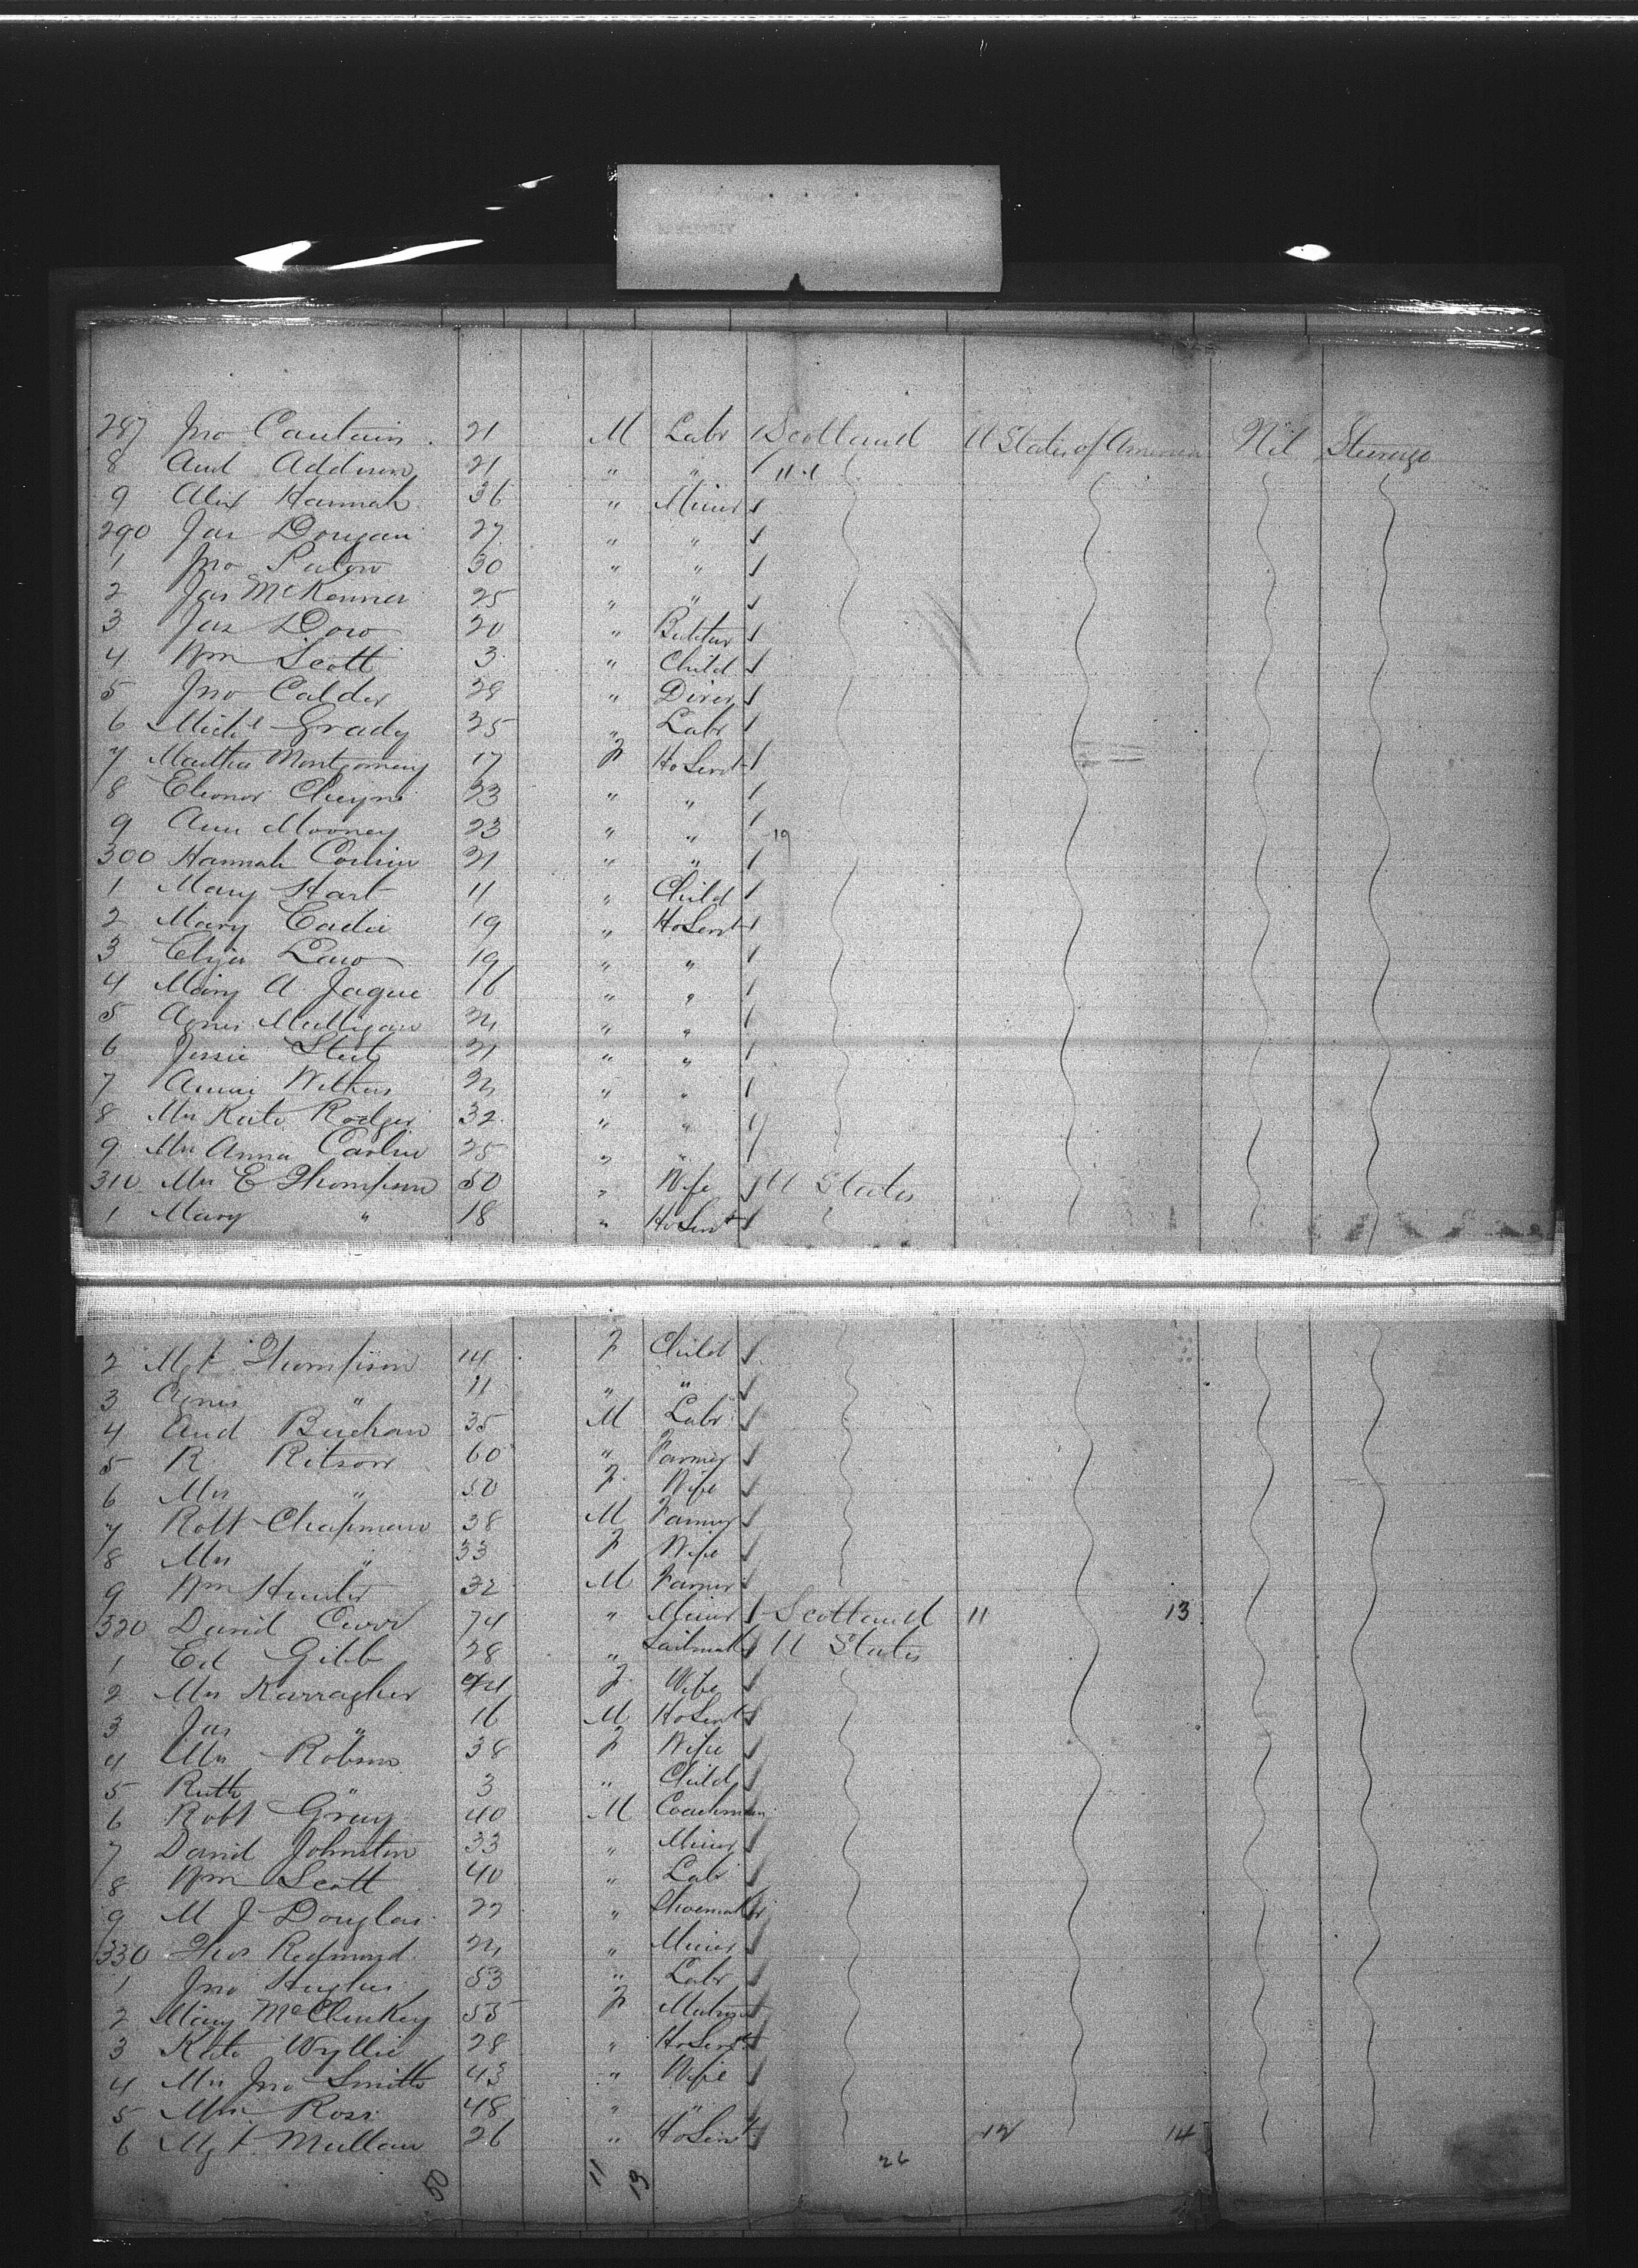 287 Jno Cantwin 21 M Labr Scotland U States of America Nil Steerage
8 And Addison 21 " "
9 Alex Hannah 36 " Miner
290 Jas Dougan 27 " "
1 Jno Paton 30 " "
2 Jas McKenner 25 " "
3 Jas Dow 20 "
4 Wm Scott 3 " Child
5 Jno Calder 29 "
6 Michl Grady 25 " Labr
7 Martha Montgomery 17 F HoServt
8 Eleonor Cheyne 23 " "
9 Ann Mooney 23 " " 19
300 Hannah 21 " "
1 Mary Hart 11 " Child
2 Mary Eadie 19 " HoServt
3 Eliza Law 19 " "
4 Mary A Jaque 16 " "
5 Agnes Mulligan 21 " "
6 Jessie 21 " "
7 Annie 21 " "
8 Mrs Kate Rodger 32 " "
9 Mrs Anna Carlin 25 " "
310 Mrs E Thompson 50 " Wife U States
1 Mary " 18 " HoServt
2 Mgt Thompson 14 F Child
3 Agnes " 11 " "
4 And Buchan 35 M Labr
5 R Ritson 60 " Farmer
6 Mrs " 50 F Wife
7 Robt Chapman 38 M Farmer
8 Mrs " 33 F Wife
9 Wm Hunter 32 M Farmer
320 David Curr 74 " Miner Scotland 11 13
1 Ed Gibb 28 " U States
2 Mrs Karragher 44 F Wife
3 Jas " 16 M HoServt
4 Mrs Robson 38 F Wife
5 Ruth " 3 " Child
6 Robt Gray 40 M Coachman
7 David Johnston 33 " Miner
8 Wm Scott 40 " Labr
9 M J Douglas 22 " Shoemaker
330 Thos Redmond 21 " Miner
1 Jno Hughes 53 " Labr
2 Mary McCluskey 55 F Matron
3 Kate Wyllie 28 " HoServt
4 Mrs Jno Smith 43 " Wife
5 Mrs Ross 48 " "
6 Mgt Mullan 26 " HoServt 12 14
50 11 13 26